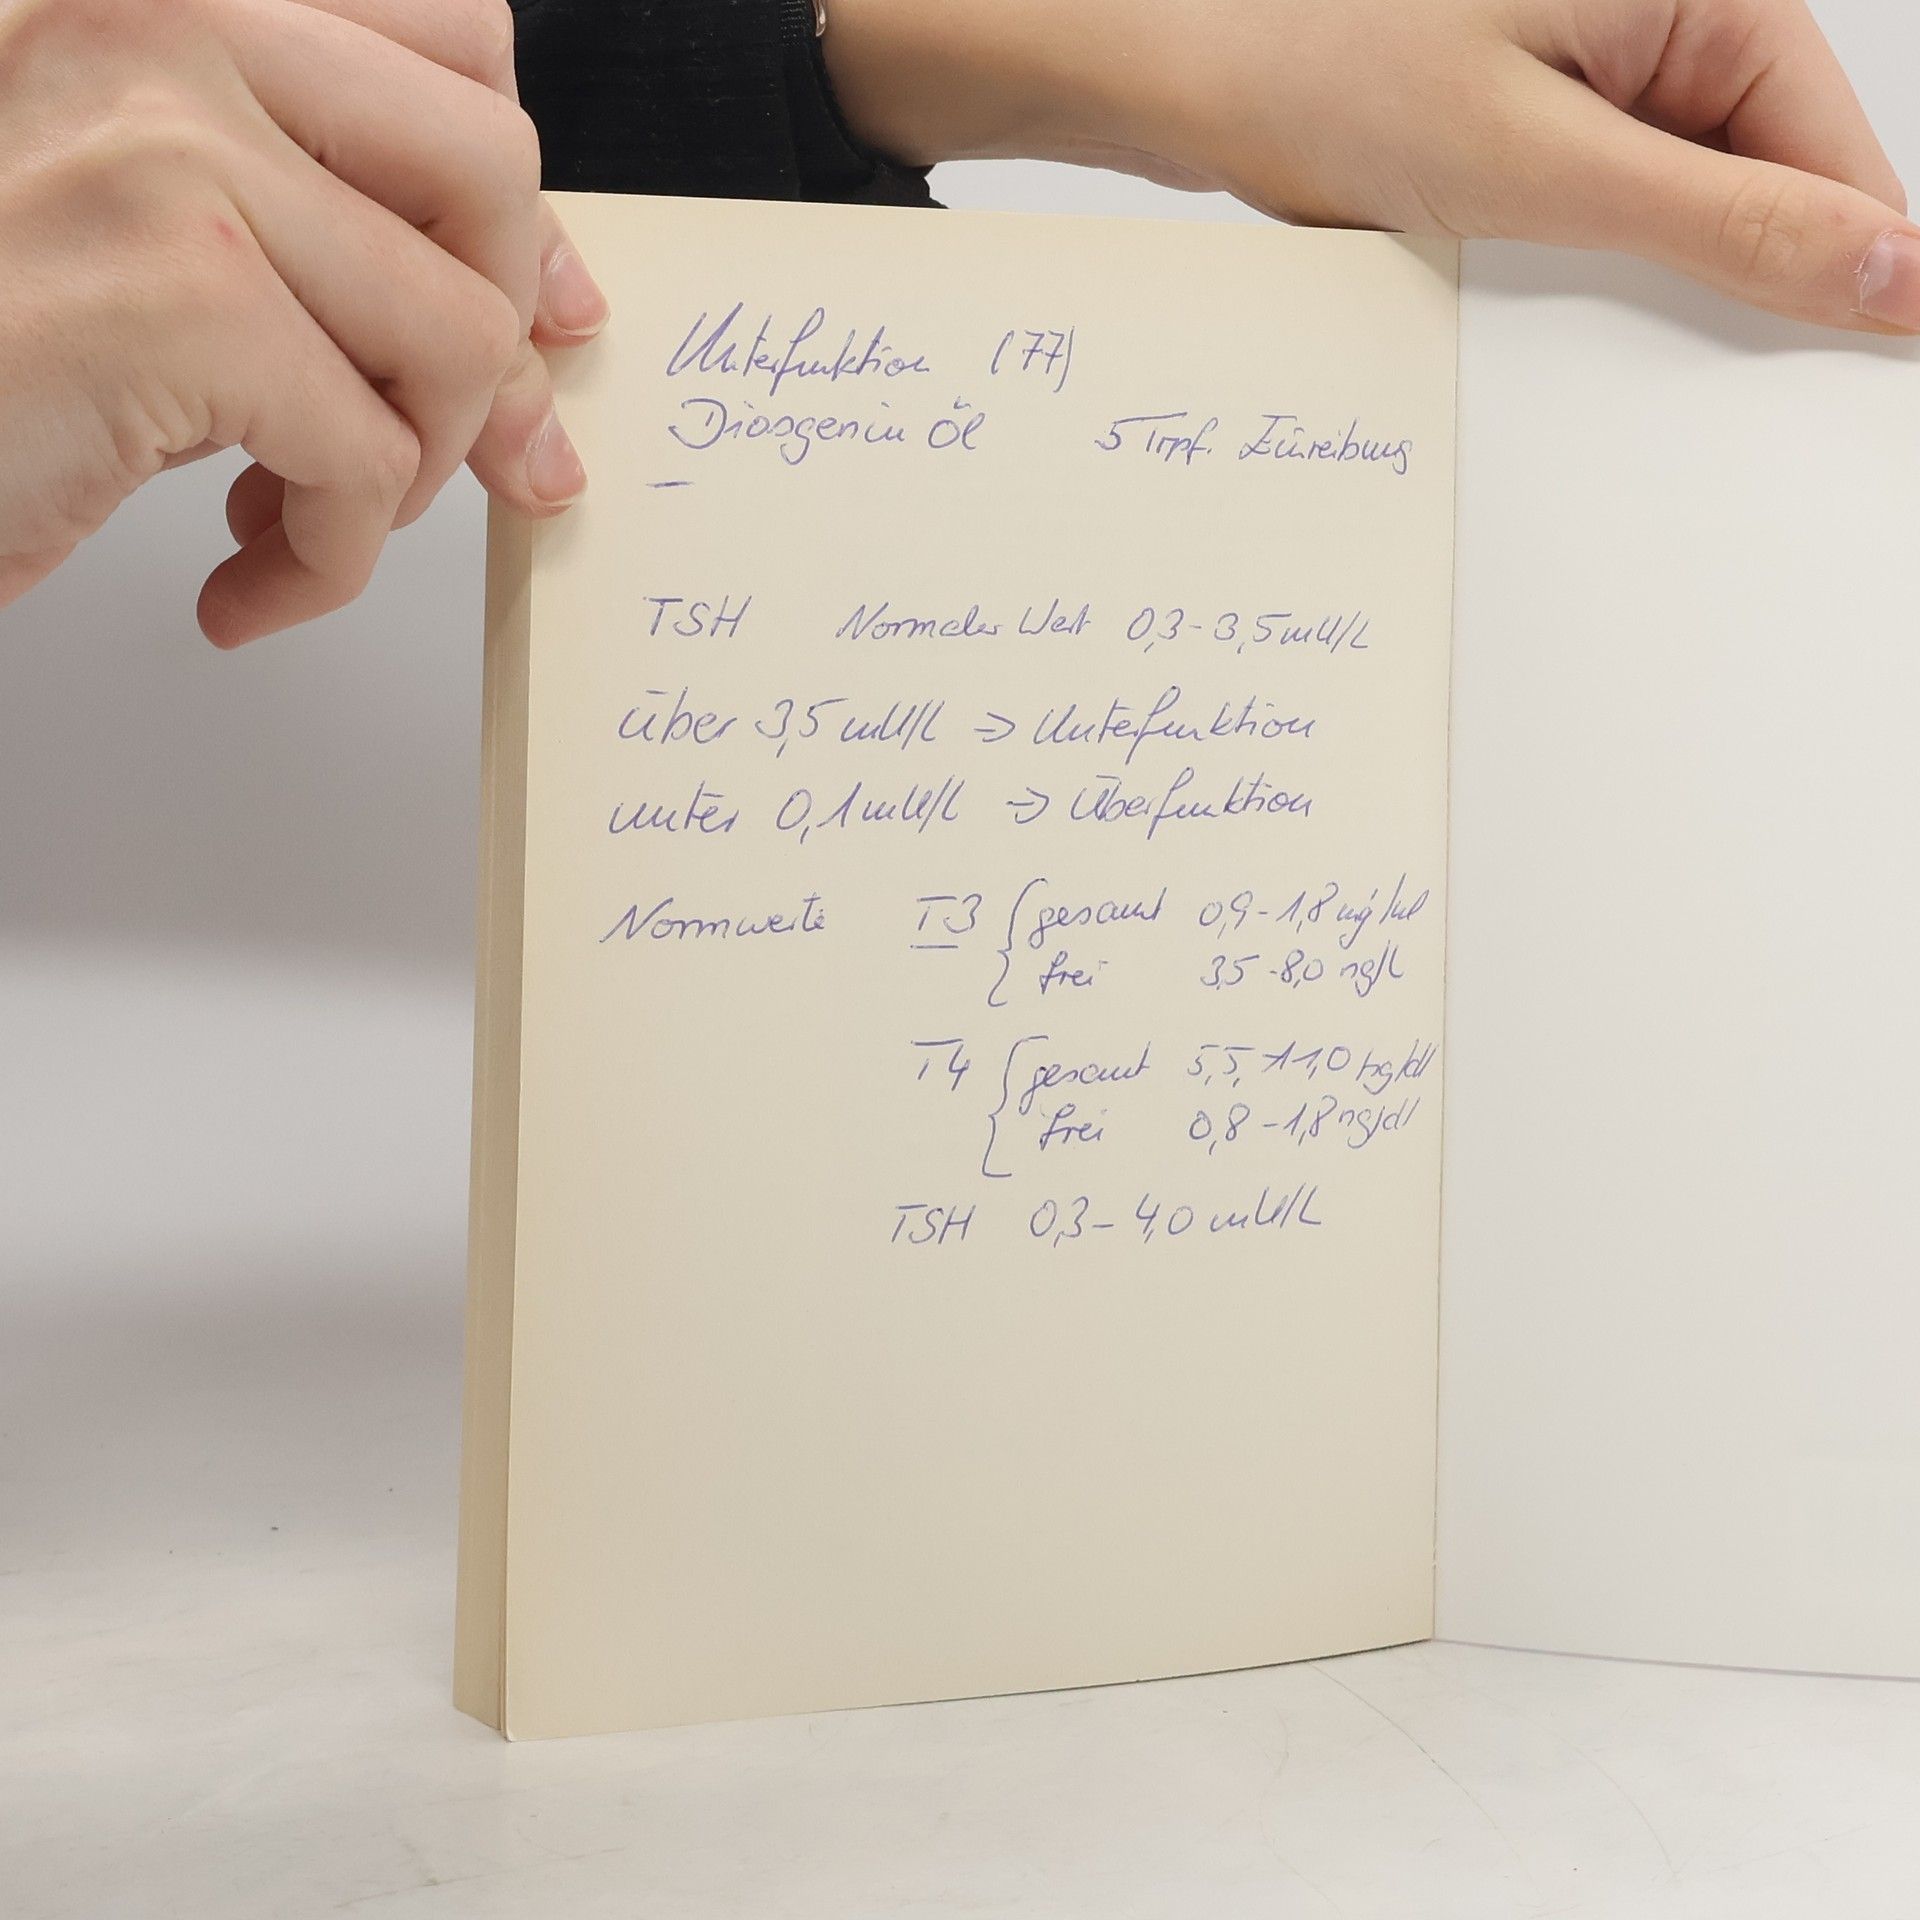 Unterfunktion (77)
Diosgenin Öl 5 Trpf. Einreibung
TSH Normaler Wert 0,3-3,5 mU/L
über 3,5 mU/L => Unterfunktion
unter 0,1 mU/L => Überfunktion
Normwerte T3 { gesamt 0,9-1,8 ng/ml
frei 3,5-8,0 ng/L
T4 { gesamt 5,5-11,0 ng/dl
frei 0,8-1,8 ng/dl
TSH 0,3-4,0 mU/L